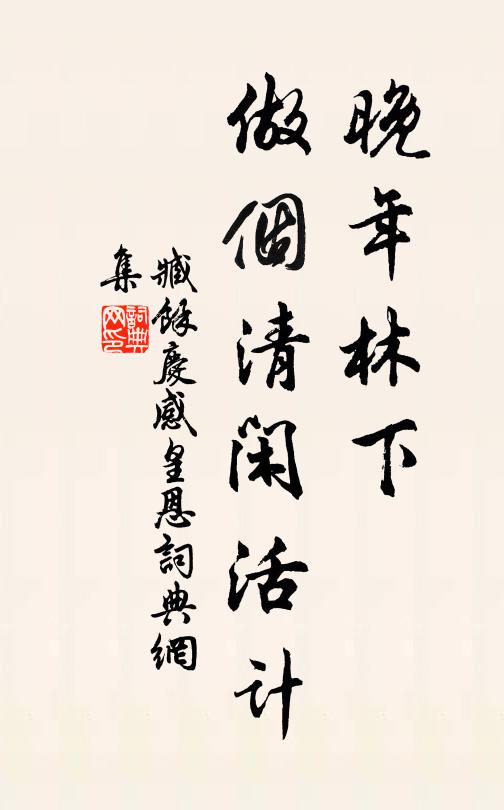 晚年林下
做個清閑活計
臧餘慶感皇恩詞典網
集
詞典網印